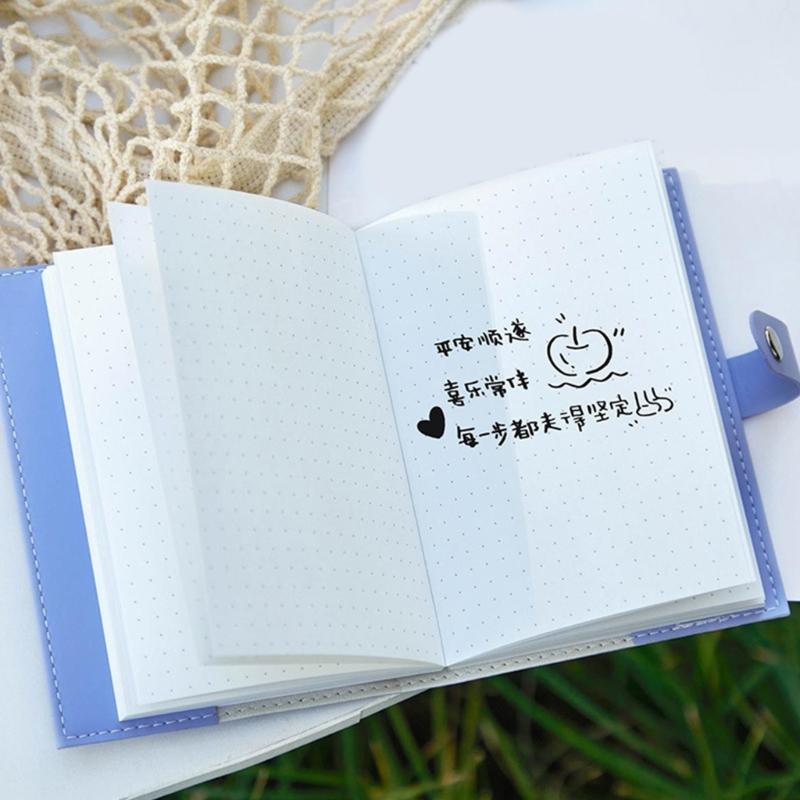 平安顺遂
喜乐常伴
每一步都走得坚定